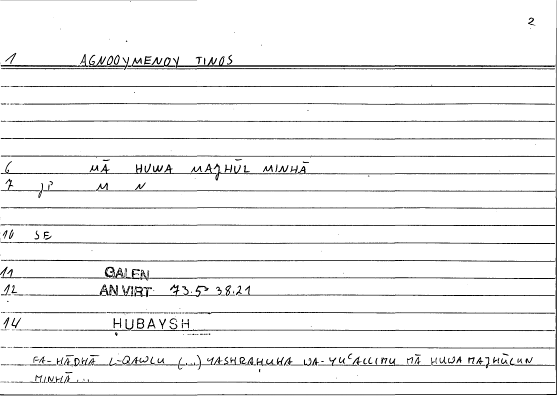 2
1 AGNOOYMENOY TINOS
6 MĀ HUWA MAJHŪL MINHĀ
7 jP M N
10 SE
11 GALEN
12 AN VIRT 73.5 38.21
14 ḤUBAYSH
FA-HĀDHĀ L-QAWLU (...) YASHRAḤUHA WA-YUᶜALLIMU MĀ HUWA MAJHŪLUN
MINHĀ...